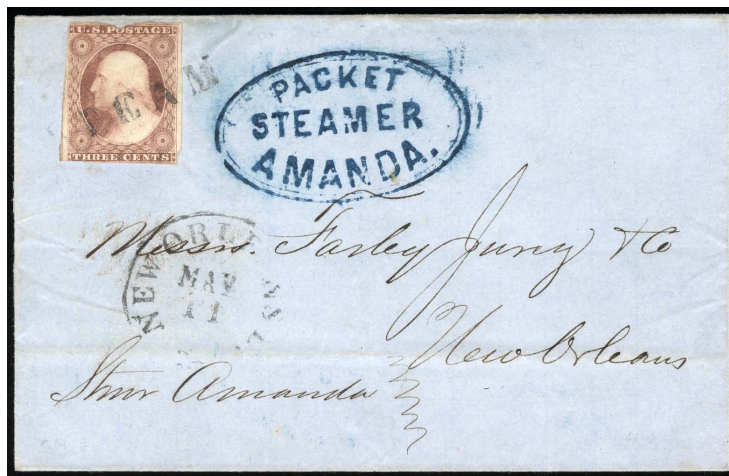 U.S. POSTAGE
THREE CENTS
STEAM
PACKET
STEAMER
AMANDA.
NEW ORLE
MAY
11
Messrs. Farley Jurey & Co
New Orleans
Stmr Amanda